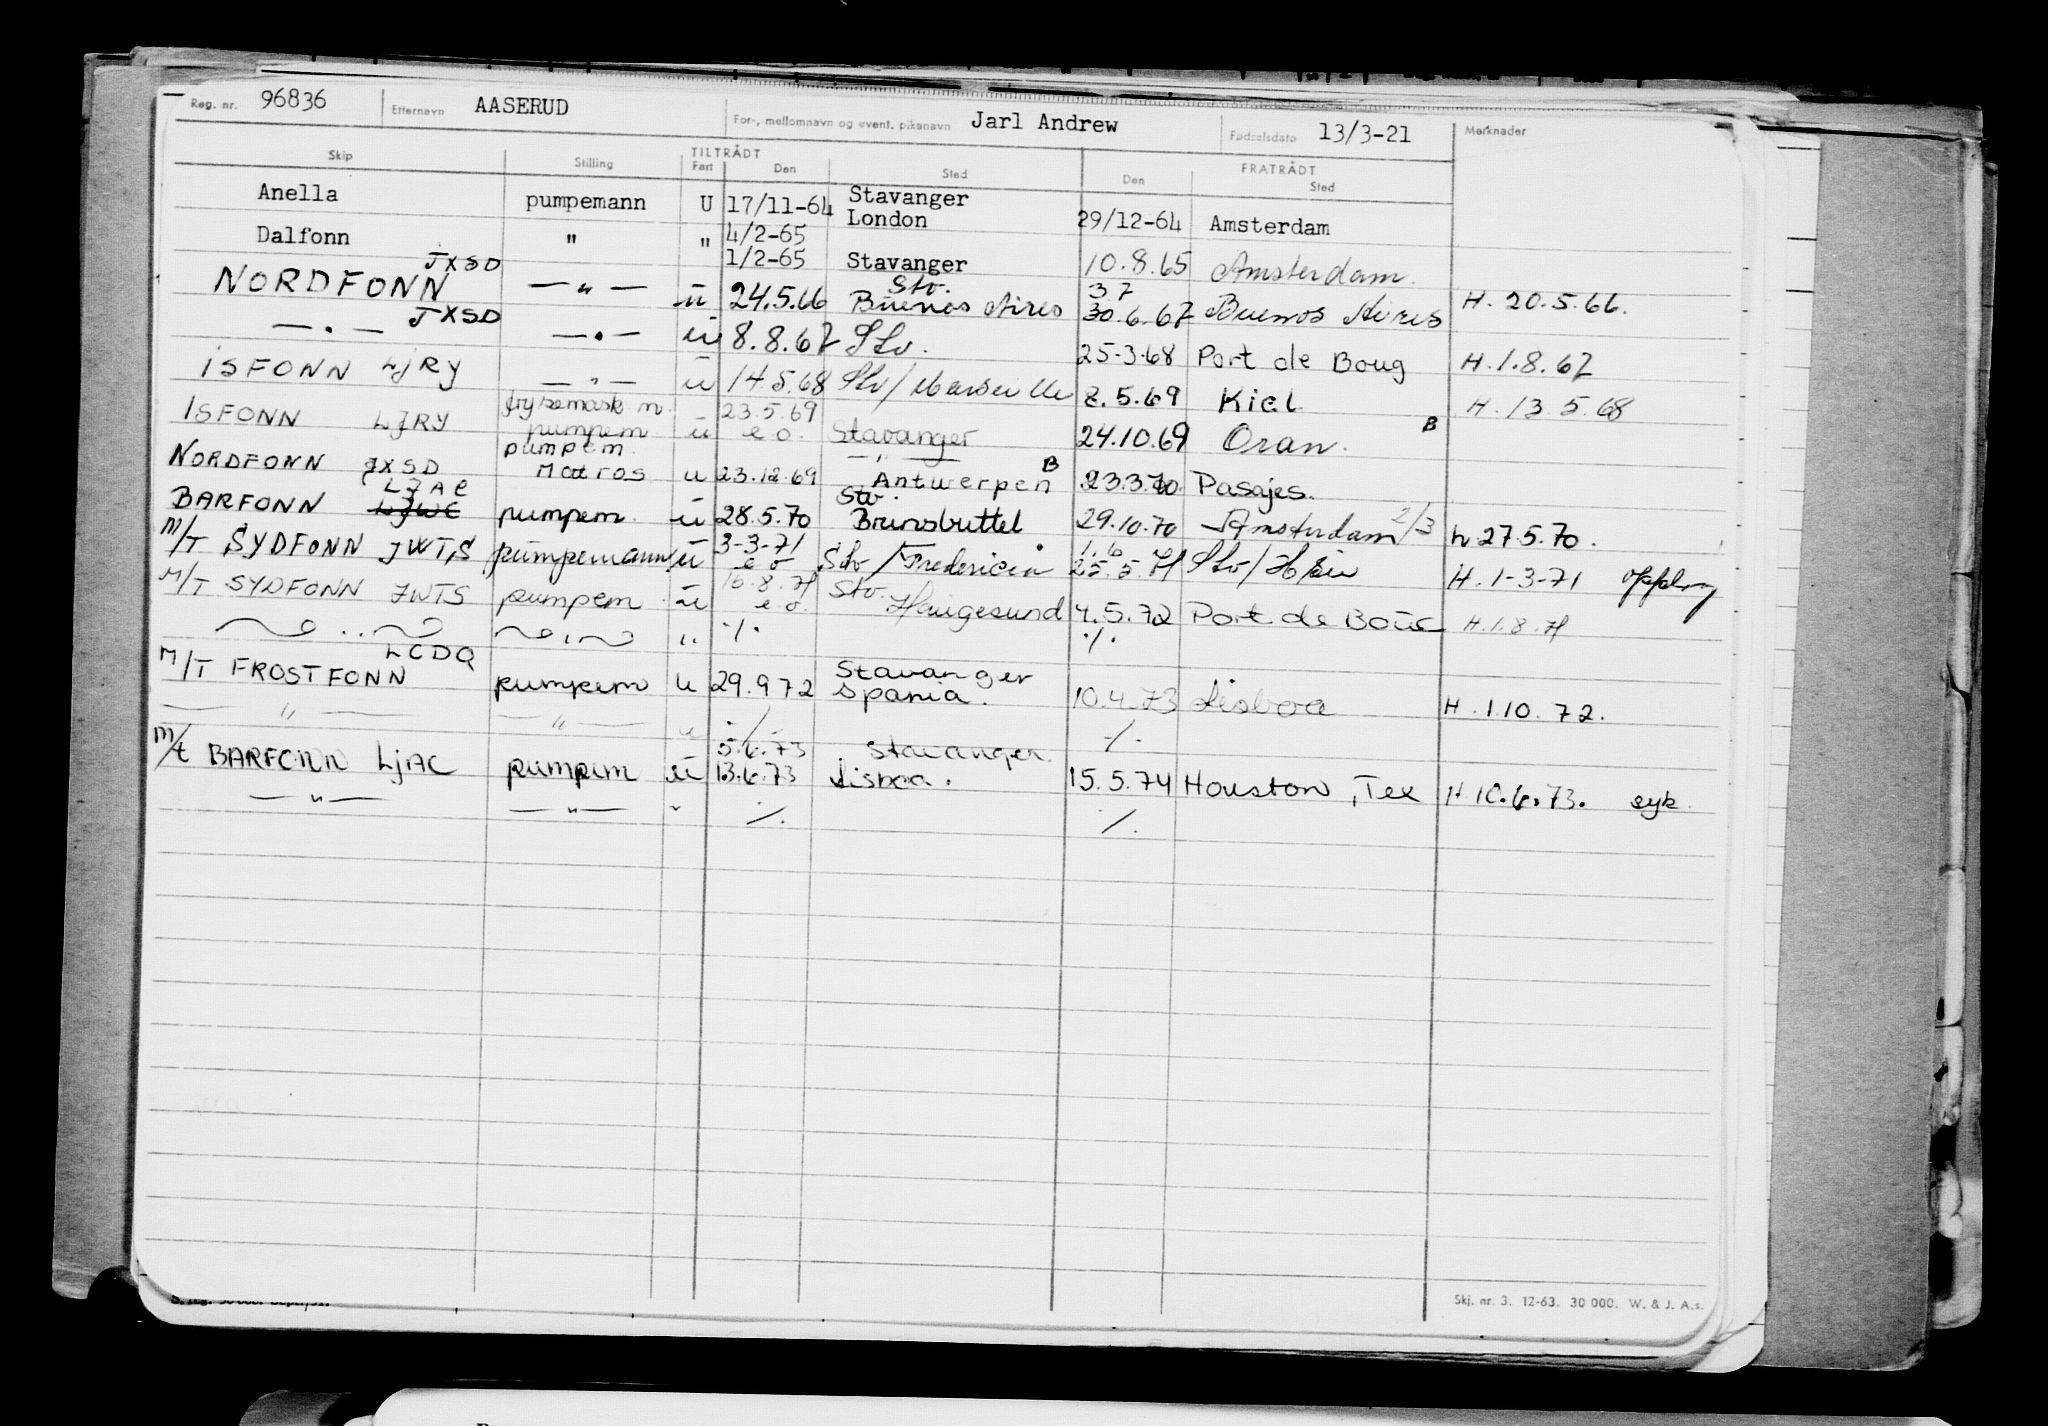 Reg. nr. 96836 Etternavn AASERUD For-, mellomnavn og event. pikenavn Jarl Andrew Fødselsdato 13/3-21 Merknader
Skip Stilling TILTRÅDT Fart Den Sted FRATRÅDT Den Sted
Anella pumpemann U 17/11-64 Stavanger London 29/12-64 Amsterdam
Dalfonn " " 4/2-65
1/2-65 Stavanger 10.8.65 Amsterdam.
NORDFONN JXSD — " — u 24.5.66 Stv. Buenos Aires 37 30.6.67 Buenos Aires H. 20.5.66.
— . — JXSD — . — u 8.8.67 Stv. 25-3-68 Port de Boug H. 1.8.67
ISFONN LJRY — " — u 14.5.68 Stv/Marseille 8.5.69 Kiel H. 13.5.68
ISFONN LJRY pumpem. u 23.5.69 e.o. Stavanger 24.10.69 Oran. B
NORDFONN JXSD pumpem. Matros u 23.12.69 — " — Antwerpen B 23.3.70 Pasajes.
BARFONN LJAC pumpem. u 28.5.70 Stv. Brunsbuttel 29.10.70 Amsterdam 2/3 h 27.5.70.
M/T SYDFONN JWTS pumpemann u 3-3-71 e o Stv/Fredericia 1.6 25.5.71 Stv/ H. 1-3-71
M/T SYDFONN JWTS pumpem. u 16.8.71 e o. Stv. Haugesund 4.5.72 Port de Bouc H. 1.8.71
" ./. ./.
M/T FROSTFONN LCDQ pumpem u 29.9.72 Stavanger Spania. 10.4.73 Lisboa H. 1.10.72.
— " — — " — u ./. ./.
M/t BARFONN LJAC pumpem u 5.6.73 13.6.73 Stavanger Lisboa. 15.5.74 Houston, Tex H 10.6.73. syk.
— " — — " — " ./. ./.
Skj. nr. 3. 12-63. 30 000. W. & J. A.s.